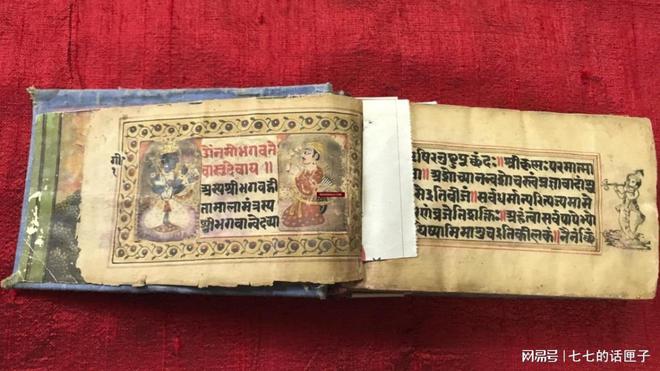 ॐनमोभगवते
वासुदेवाय॥
अस्यश्रीभगवद्गी
तामालामंत्रस्य
श्रीभगवान्वेदव्या
गी
षिरनुष्टुप्छंदः॥श्रीकृष्णःपरमात्मा
॥अशोच्यानन्वशोचस्त्वंप्रज्ञावादांश्च
सेइतिबीजं॥सर्वधर्मान्परित्यज्यमामे
रणंव्रजेतिशक्तिः॥अहंत्वासर्वपापेभ्यो
यिष्यामिमाशुचइतिकीलकं॥नैनंछिं
网易号 | 七七的话匣子